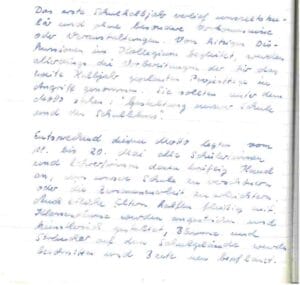 Das erste Schulhalbjahr verlief unspektaku-
lär und ohne besondere Vorkommnisse
oder Veranstaltungen. Von hitzigen Dis-
kussionen im Kollegium begleitet, wurden
allerdings die Vorbereitungen der für das
zweite Halbjahr geplanten Projekttage in
Angriff genommen. Sie sollten unter dem
Motto stehen: Gestaltung unserer Schule
und des Schullebens.
Entsprechend diesem Motto legten vom
bis 20. Mai alle Schülerinnen
und Schüler kräftig Hand
an, um unsere Schule zu verschönern
oder die Zusammenarbeit zu erleichtern.
Auch etliche Eltern halfen fleißig mit.
Klassenräume wurden angestrichen und
künstlerisch gestaltet, Bäume und
Sträucher auf dem Schulgelände wurden
und Beete neu bepflanzt.